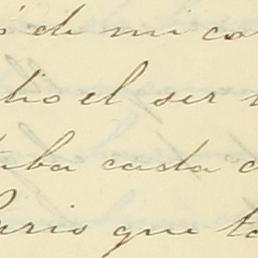 ó de mi co
dio el ser
taba cada
ario que to